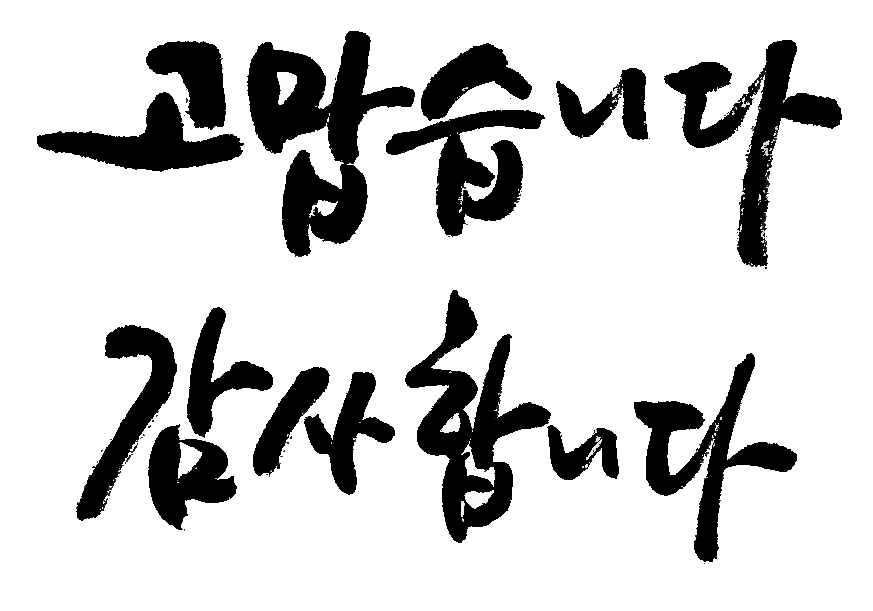 고맙습니다
감사합니다